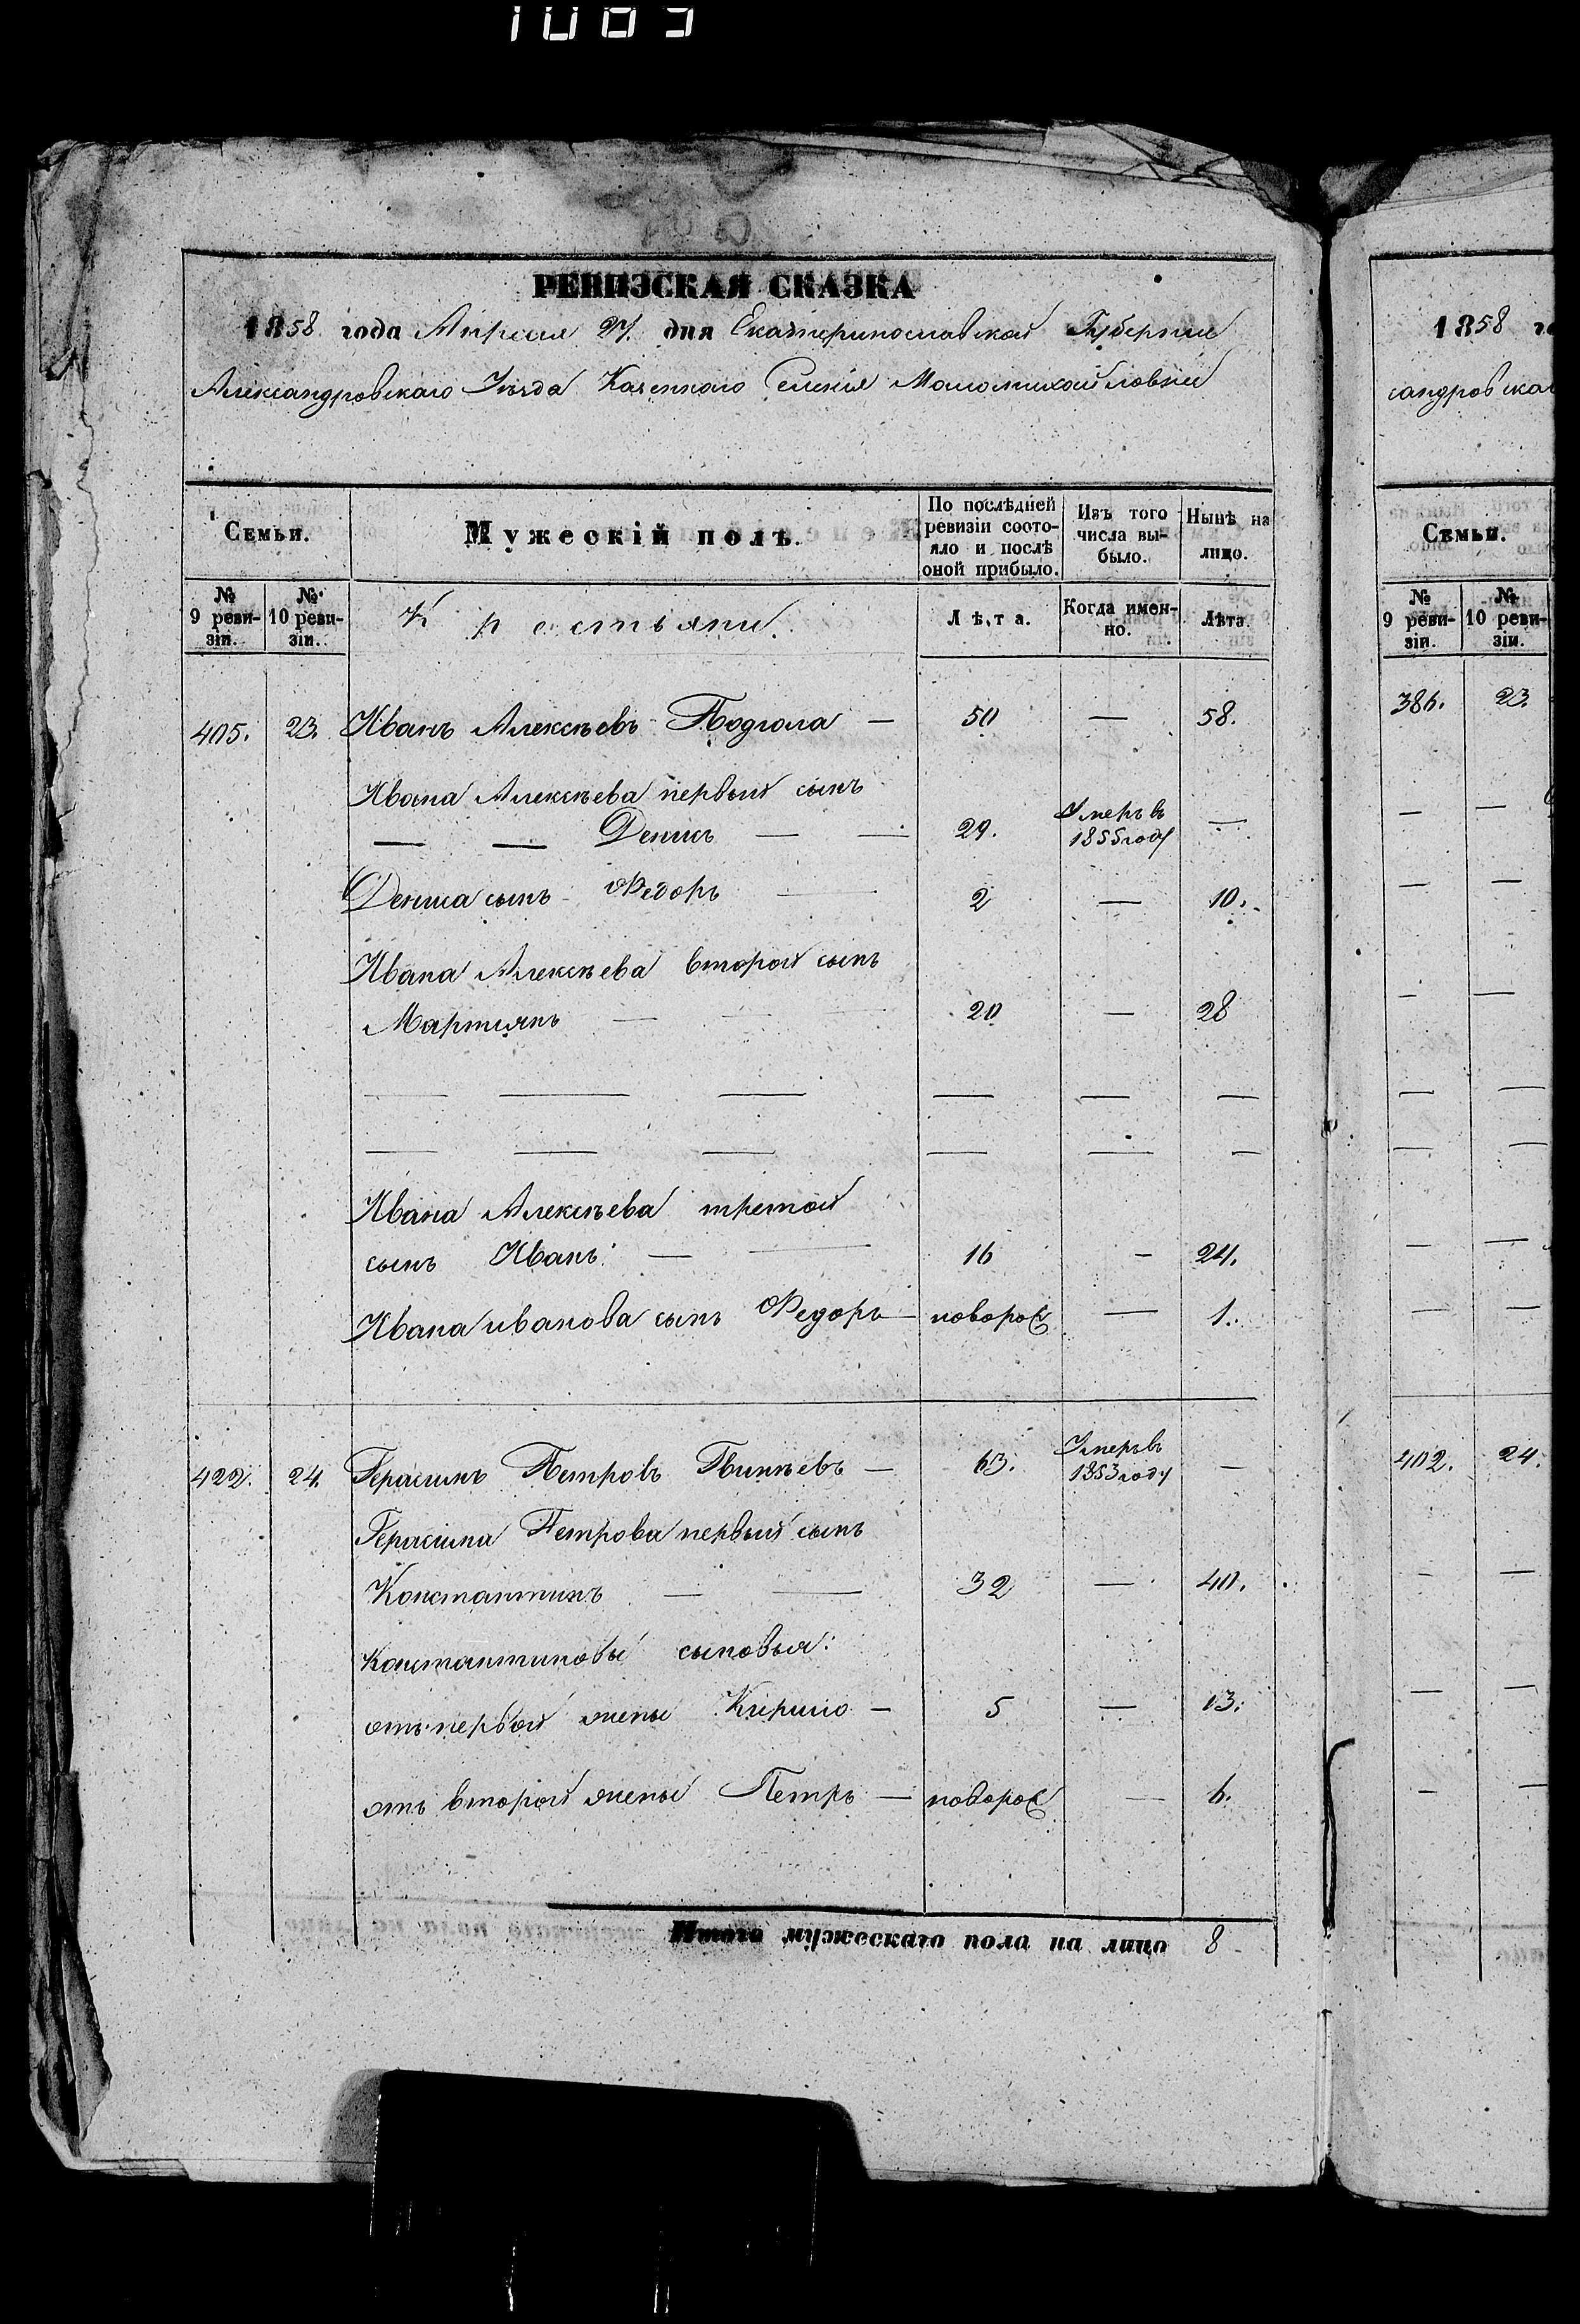 РЕВИЗСКАЯ СКАЗКА
1858 года Апреля 27. дня Екатеринославской Губернии
Александровскаго Уѣзда Казеннаго Селенія Маломихайловки
Семьи.
Мужескій полъ.
По послѣдней
ревизіи состо-
яло и послѣ
оной прибыло.
Изъ того
числа вы-
было.
Нынѣ на
лицо.
№
9 реви-
зіи.
№
10 реви-
зіи.
Крестьяни.
Лѣта.
Когда имен-
но.
Лѣта.
405. 23. Иванъ Алексѣевъ Подгола — 50 — 58.
Ивана Алексѣева первый сынъ
— — Денисъ — — 29. Умеръ въ 1855 году —
Дениса сынъ Федоръ — 2 — 10.
Ивана Алексѣева второй сынъ
Мартынъ — — — 20 — 28
— — — — — —
— — — — — —
Ивана Алексѣева третой
сынъ Иванъ — — 16 — 24.
Ивана иванова сынъ Федоръ — новорож — 1.
422. 24. Герасимъ Петровъ — 63. Умеръ въ 1853 году —
Герасима Петрова первый сынъ
Константинъ — — 32 — 40.
Константиновы сыновья:
отъ первой жены Кирило — 5 — 13.
отъ второй жены Петръ — новорож — 6.
Итого мужескаго пола на лицо 8
1858
сандровска
Семьи.
№
9 реви-
зіи.
№
10 реви-
зіи.
386. 23.
402. 24.